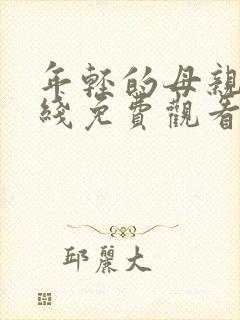 年輕的母親
綫免費觀看
邱麗大